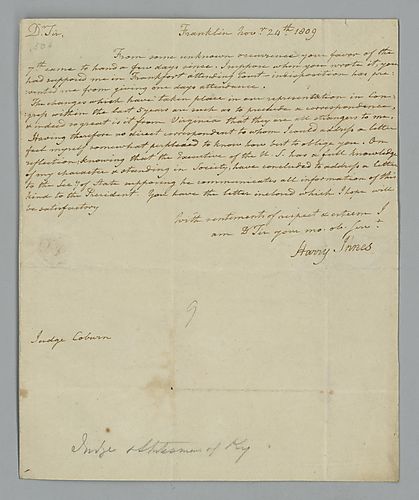 Dr Sir,
Franklin Novr 24th 1809
1809
From some unknown occurrence your favor of the
7th came to hand a few days since. I suppose when you wrote it you
had supposed me in Frankfort attending Court - indisposition has pre-
vented me from giving one days attendance.
The changes which have taken place in our representation in Con-
gress within the last 8 years are such as to preclude a correspondence,
& indeed so great is it from Virginia that they are all strangers to me.
Having therefore no direct correspondent to whom I could address a letter
feel myself somewhat perplexed to know how best to oblige you. On
reflection, knowing that the Executive of the U. S. has a full knowledge
of my character & standing in Society, have concluded to address a letter
to the Secy of State supposing he communicates all information of this
kind to the President. You have the letter inclosed which I hope will
be satisfactory
With sentiments of respect & esteem I
am Dr Sir your mo. ob. Serv t
Harry Innes
9
Judge Coburn
Judge & Statesman of Ky.